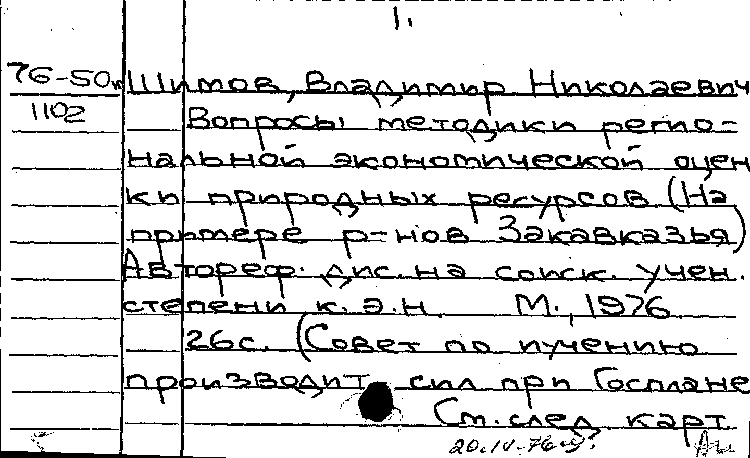 1.
76-50к Шимов, Владимир Николаевич
1102 Вопросы методики регио-
нальной экономической оцен
ки природных ресурсов (На
примере р-нов Закавказья)
Автореф. дис. на соиск. учен.
степени к.э.н. М., 1976
26с. (Совет по изучению
производит сил при Госплане
См. след карт
20.IV-76